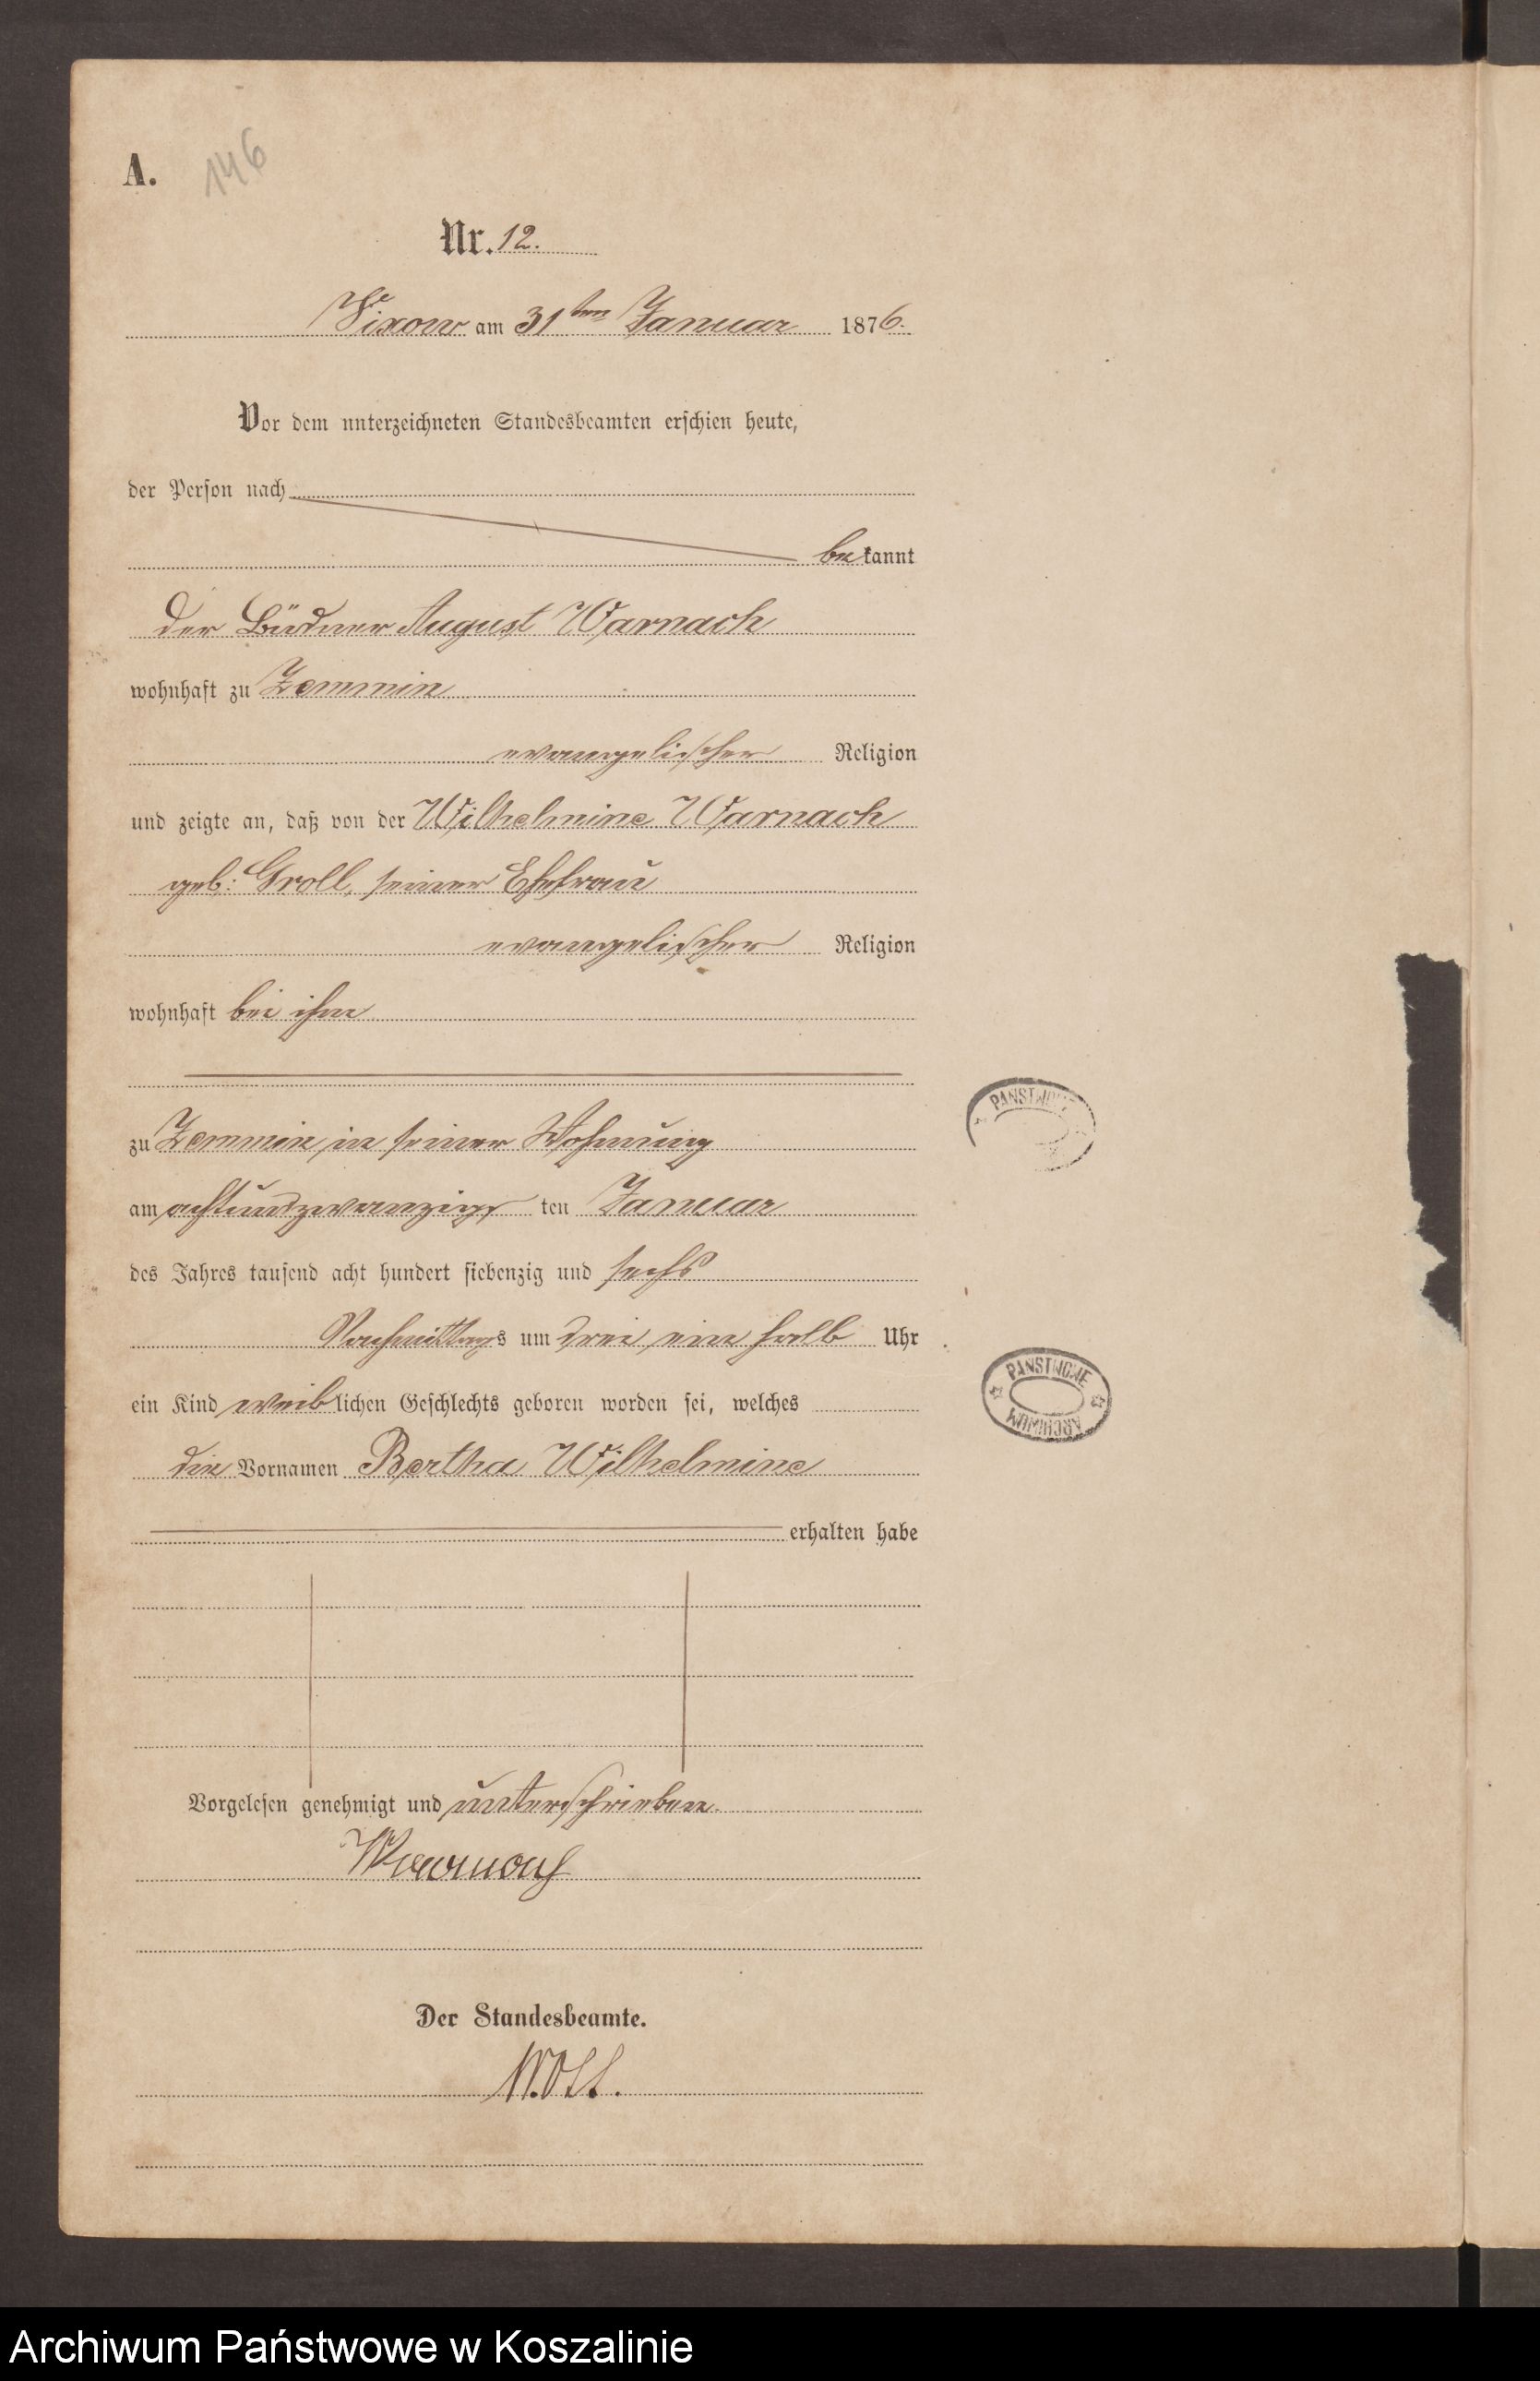 A.
146
Nr. 12.
Vixow am 31ten Januar 1876.
Vor dem unterzeichneten Standesbeamten erschien heute,
der Person nach
bekannt
der Büdner August Warnach
wohnhaft zu Zemmin
evangelischer Religion
und zeigte an, daß von der Wilhelmine Warnach
geb: Groll, seiner Ehefrau
evangelischer Religion
wohnhaft bei ihm
zu Zemmin in seiner Wohnung
am achtundzwanzigsten Januar
des Jahres tausend acht hundert siebenzig und sechs
Nachmittags um drei ein halb Uhr
ein Kind weiblichen Geschlechts geboren worden sei, welches
die Vornamen Bertha Wilhelmine
erhalten habe
Vorgelesen genehmigt und unterschrieben.
Warnach
Der Standesbeamte.
PAŃSTWOWE
PAŃSTWOWE ARCHIWUM
Archiwum Państwowe w Koszalinie